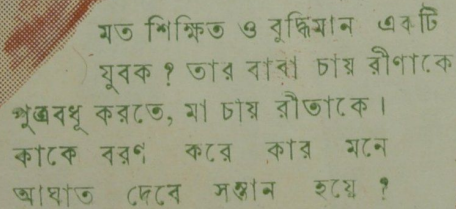 মত শিক্ষিত ও বুদ্ধিমান একটি
যুবক ? তার বাবা চায় রীণাকে
পুত্রবধূ করতে, মা চায় রীতাকে ।
কাকে বরণ করে কার মনে
আঘাত দেবে সন্তান হয়ে ?